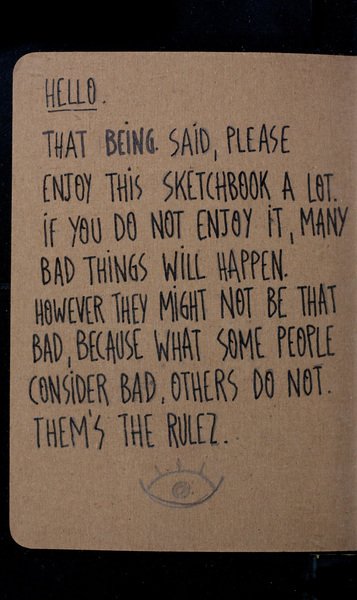 HELLO.
THAT BEING. SAID, PLEASE
ENJOY THIS SKETCHBOOK A LOT.
IF YOU DO NOT ENJOY IT, MANY
BAD THINGS WILL HAPPEN.
HOWEVER THEY MIGHT NOT BE THAT
BAD, BECAUSE WHAT SOME PEOPLE
CONSIDER BAD, OTHERS DO NOT.
THEM'S THE RULEZ.